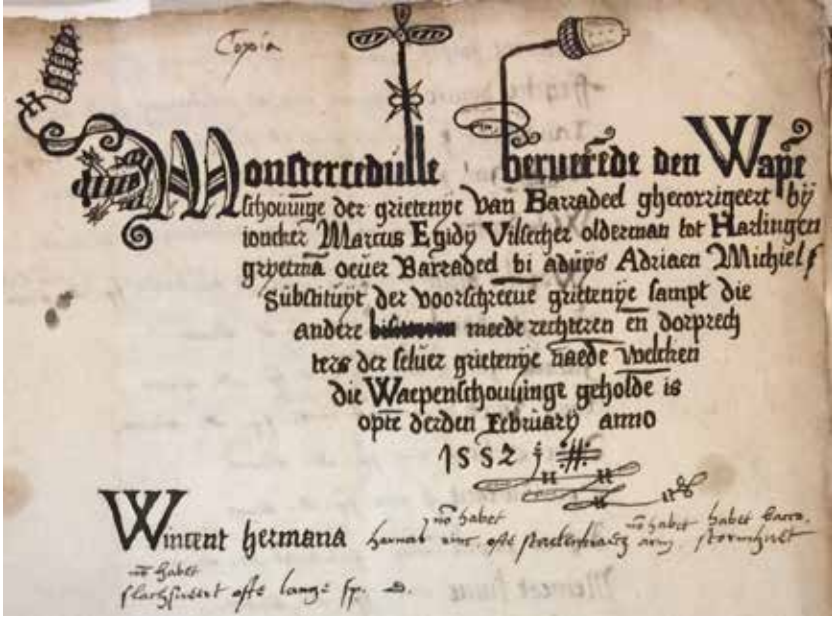 Copia
Monstercedulle beruerēde den Wapē
schouwīge der grietenye van Barradeel ghecorrigeert bij
ioncker Marcus Egidÿ Vilsecher olderman tot Harlingen
gryetmā oeuer Barradeel bi aduÿs Adriaen Michiels
Substituyt der voorschreeue grietenÿe sampt die
andere meede rechteren eñ dorprech
ters der seluer grietenÿe naede welcken
die Waepenschouwinge geholdē is
opte derden Februarÿ anno
1552
nō habet nō habet habet
Wincent hermana harnas rinc, ofte arm, stormhuet
nō habet
slachsweert ofte lange sp.